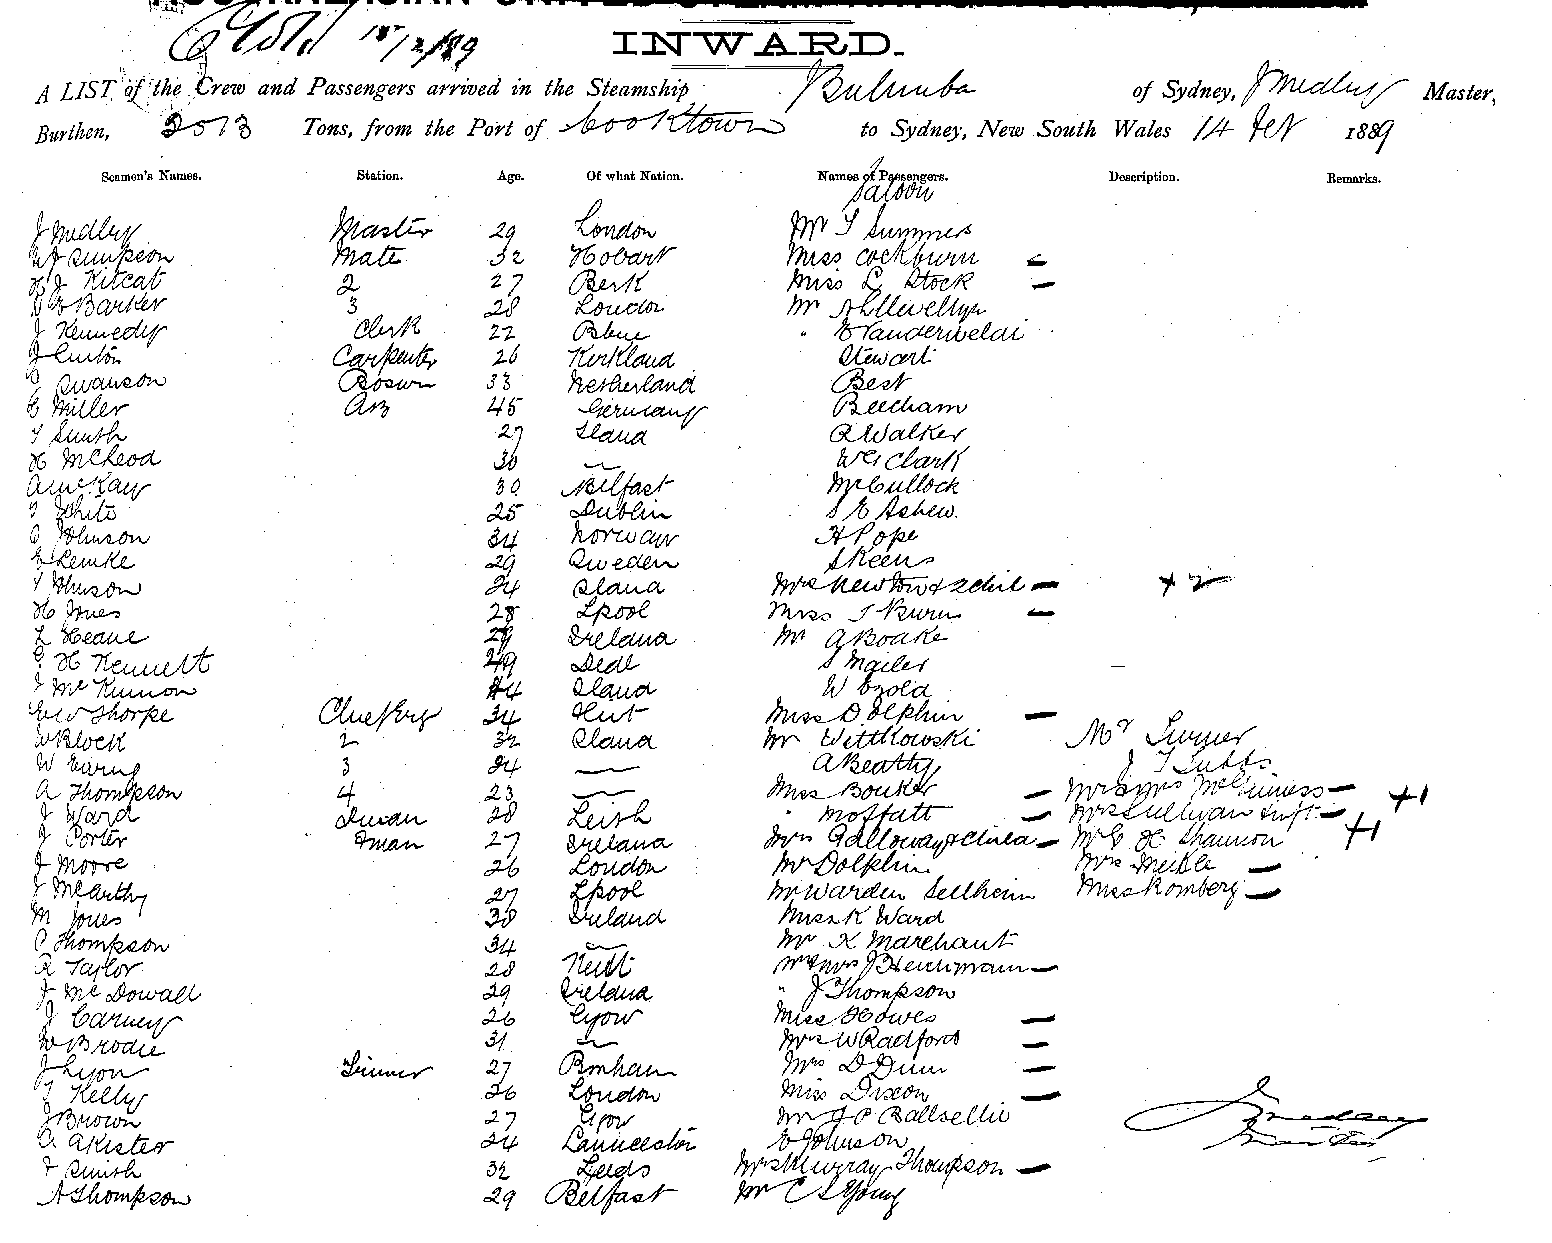 INWARD.
A LIST of the Crew and Passengers arrived in the Steamship Bulimba of Sydney, J Medley Master,
Burthen, 2513 Tons, from the Port of Cooktown to Sydney, New South Wales 14 1889
Seamen's Names. Station. Age. Of what Nation. Names of Passengers. Description. Remarks.
Saloon
J Medley Master 29 London Mr T Summers
Simpson Mate 32 Hobart Miss Cockburn
H J Kitcat 2 27 Berk Miss L Stock
Barker 3 28 London Mr A Llewellyn
J Kennedy Clerk 22 " Vanderweldi
J Carpenter 26 Kirkland Stewart
Swanson Bosun 33 Netherland Best
Miller AB 45 Germany Beecham
T Smith 27 Sland R Walker
H McLeod 30 W G Clark
A McKay 30 Belfast McCullock
White 25 Dublin S E Askew.
Johnson 34 Norway H Pope
Lemke 29 Sweden Skeens
Johnson 24 Sland Mrs Newton & 2 chil + 2
H Jones 28 Lpool Miss T Burn
Keane Ireland Mr A Boake
H Kennett 49 Deal S Mailer
J McKinnon Sland W
Thorpe 34 Miss Dolphin
W Block 2 32 Sland Mr Wittkowski Mr Turner
W 3 24 A Beatty J T Tubbs
A Thompson 4 23 Miss Bouker Mr & Mrs McGuiness + 1
J Ward 28 Leith " Moffatt Mrs Sullivan & inft
J Porter 27 Ireland Mrs Galloway & Child Mr H Shannon + 1
J Moore 26 London Mr Dolphin Mrs
J McCarthy 27 Lpool Mr Warden Sellheim Miss Romberg
M Jones 38 Ireland Miss K Ward
Thompson 34 Mr K Marchant
R Taylor 28 Mr & Mrs J B
J McDowall 29 Ireland " J Thompson
J Carney 26 Glgow Miss Howes
W Brodie 31 Mrs W Radford
J Lyon Trimer 27 Bmham Mrs D Dunn
Kelly 26 London Miss Dixon
J Brown 27 Glgow Mr J P
A Kister 24 Launceston E Johnson
Smith 32 Leeds Mrs Murray Thompson
A Thompson 29 Belfast Mr C S Young
J Medley
Master